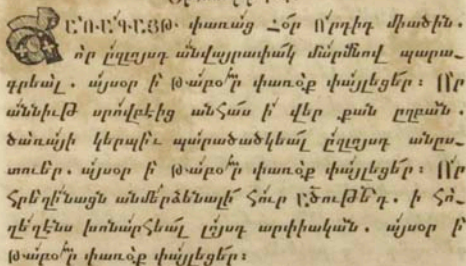 ՃԱՌԱԳԱՅԹ փառաց Հօր Որդիդ միածին.
որ ըզլոյսդ անվայրափակ մարմնով պարա֊
գրեալ. այսօր ի թաբօր փառօք փայլեցեր։ Որ
աննիւթ սրովբէից անհաս ի վեր քան ըզբան.
ծառայի կերպիւ պարածածկեալ ըզլոյսդ անըս֊
տուեր. այսօր ի թաբօր փառօք փայլեցեր։ Որ
հրեղինացն անմերձենալի հուր ԱԾութեդ. ի հո֊
ղեղէնս խոնարհեալ լոյսդ արփիական. այսօր ի
թաբօր փառօք փայլեցեր։